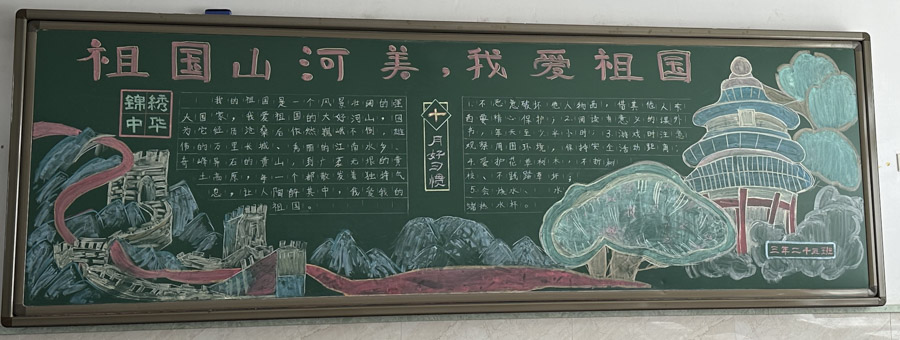 祖国山河美，我爱祖国
锦绣
中华
我的祖国是一个风景壮阔的强
大国家，我爱祖国的大好河山。因
为它经历沧桑后依然巍峨不倒，雄
伟的万里长城、秀丽的江南水乡、
奇峰异石的黄山，到广袤无垠的黄
土高原，每一个都散发着独特气
息，让人陶醉其中，我爱我的
祖国。
十月好习惯
1.不故意破坏他人物品，借其他人东
西要精心保护；2.阅读有意义的课外
书，每天至少半小时；3.游戏时注意
观察周围环境，保持安全活动距离；
4.爱护花草树木，不折树
枝、不践踏草坪；
5.会烧水、
三年二十五班